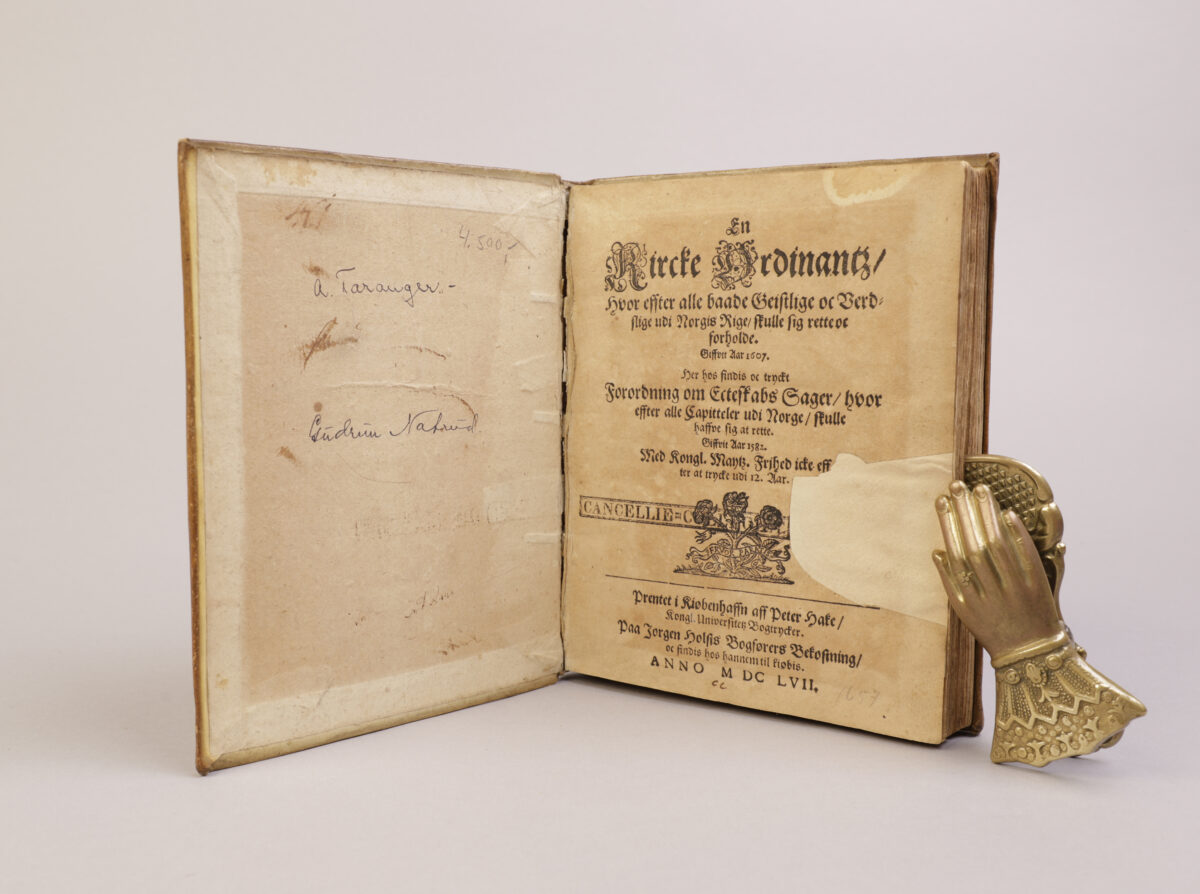 4.500,-
A. Taranger.-
Gudrun Natrud.
En
Kircke Ordinantz/
Hvor effter alle baade Geistlige oc Verd-
slige udi Norgis Rige/ skulle sig rette oc
forholde.
Giffvit Aar 1607.
Her hos findis oc tryckt
Forordning om Ecteskabs Sager/ hvor
effter alle Capitteler udi Norge/ skulle
haffve sig at rette.
Giffvit Aar 1582.
Med Kongl. Maytz. Frihed icke eff
ter at trycke udi 12. Aar.
CANCELLIE=C
Prentet i Kiøbenhaffn aff Peter Hake/
Kongl. Universitetz Bogtrycker.
Paa Jørgen Holstis Bogførers Bekostning/
oc findis hos hannem til kiøbis.
ANNO M DC LVII.
1657